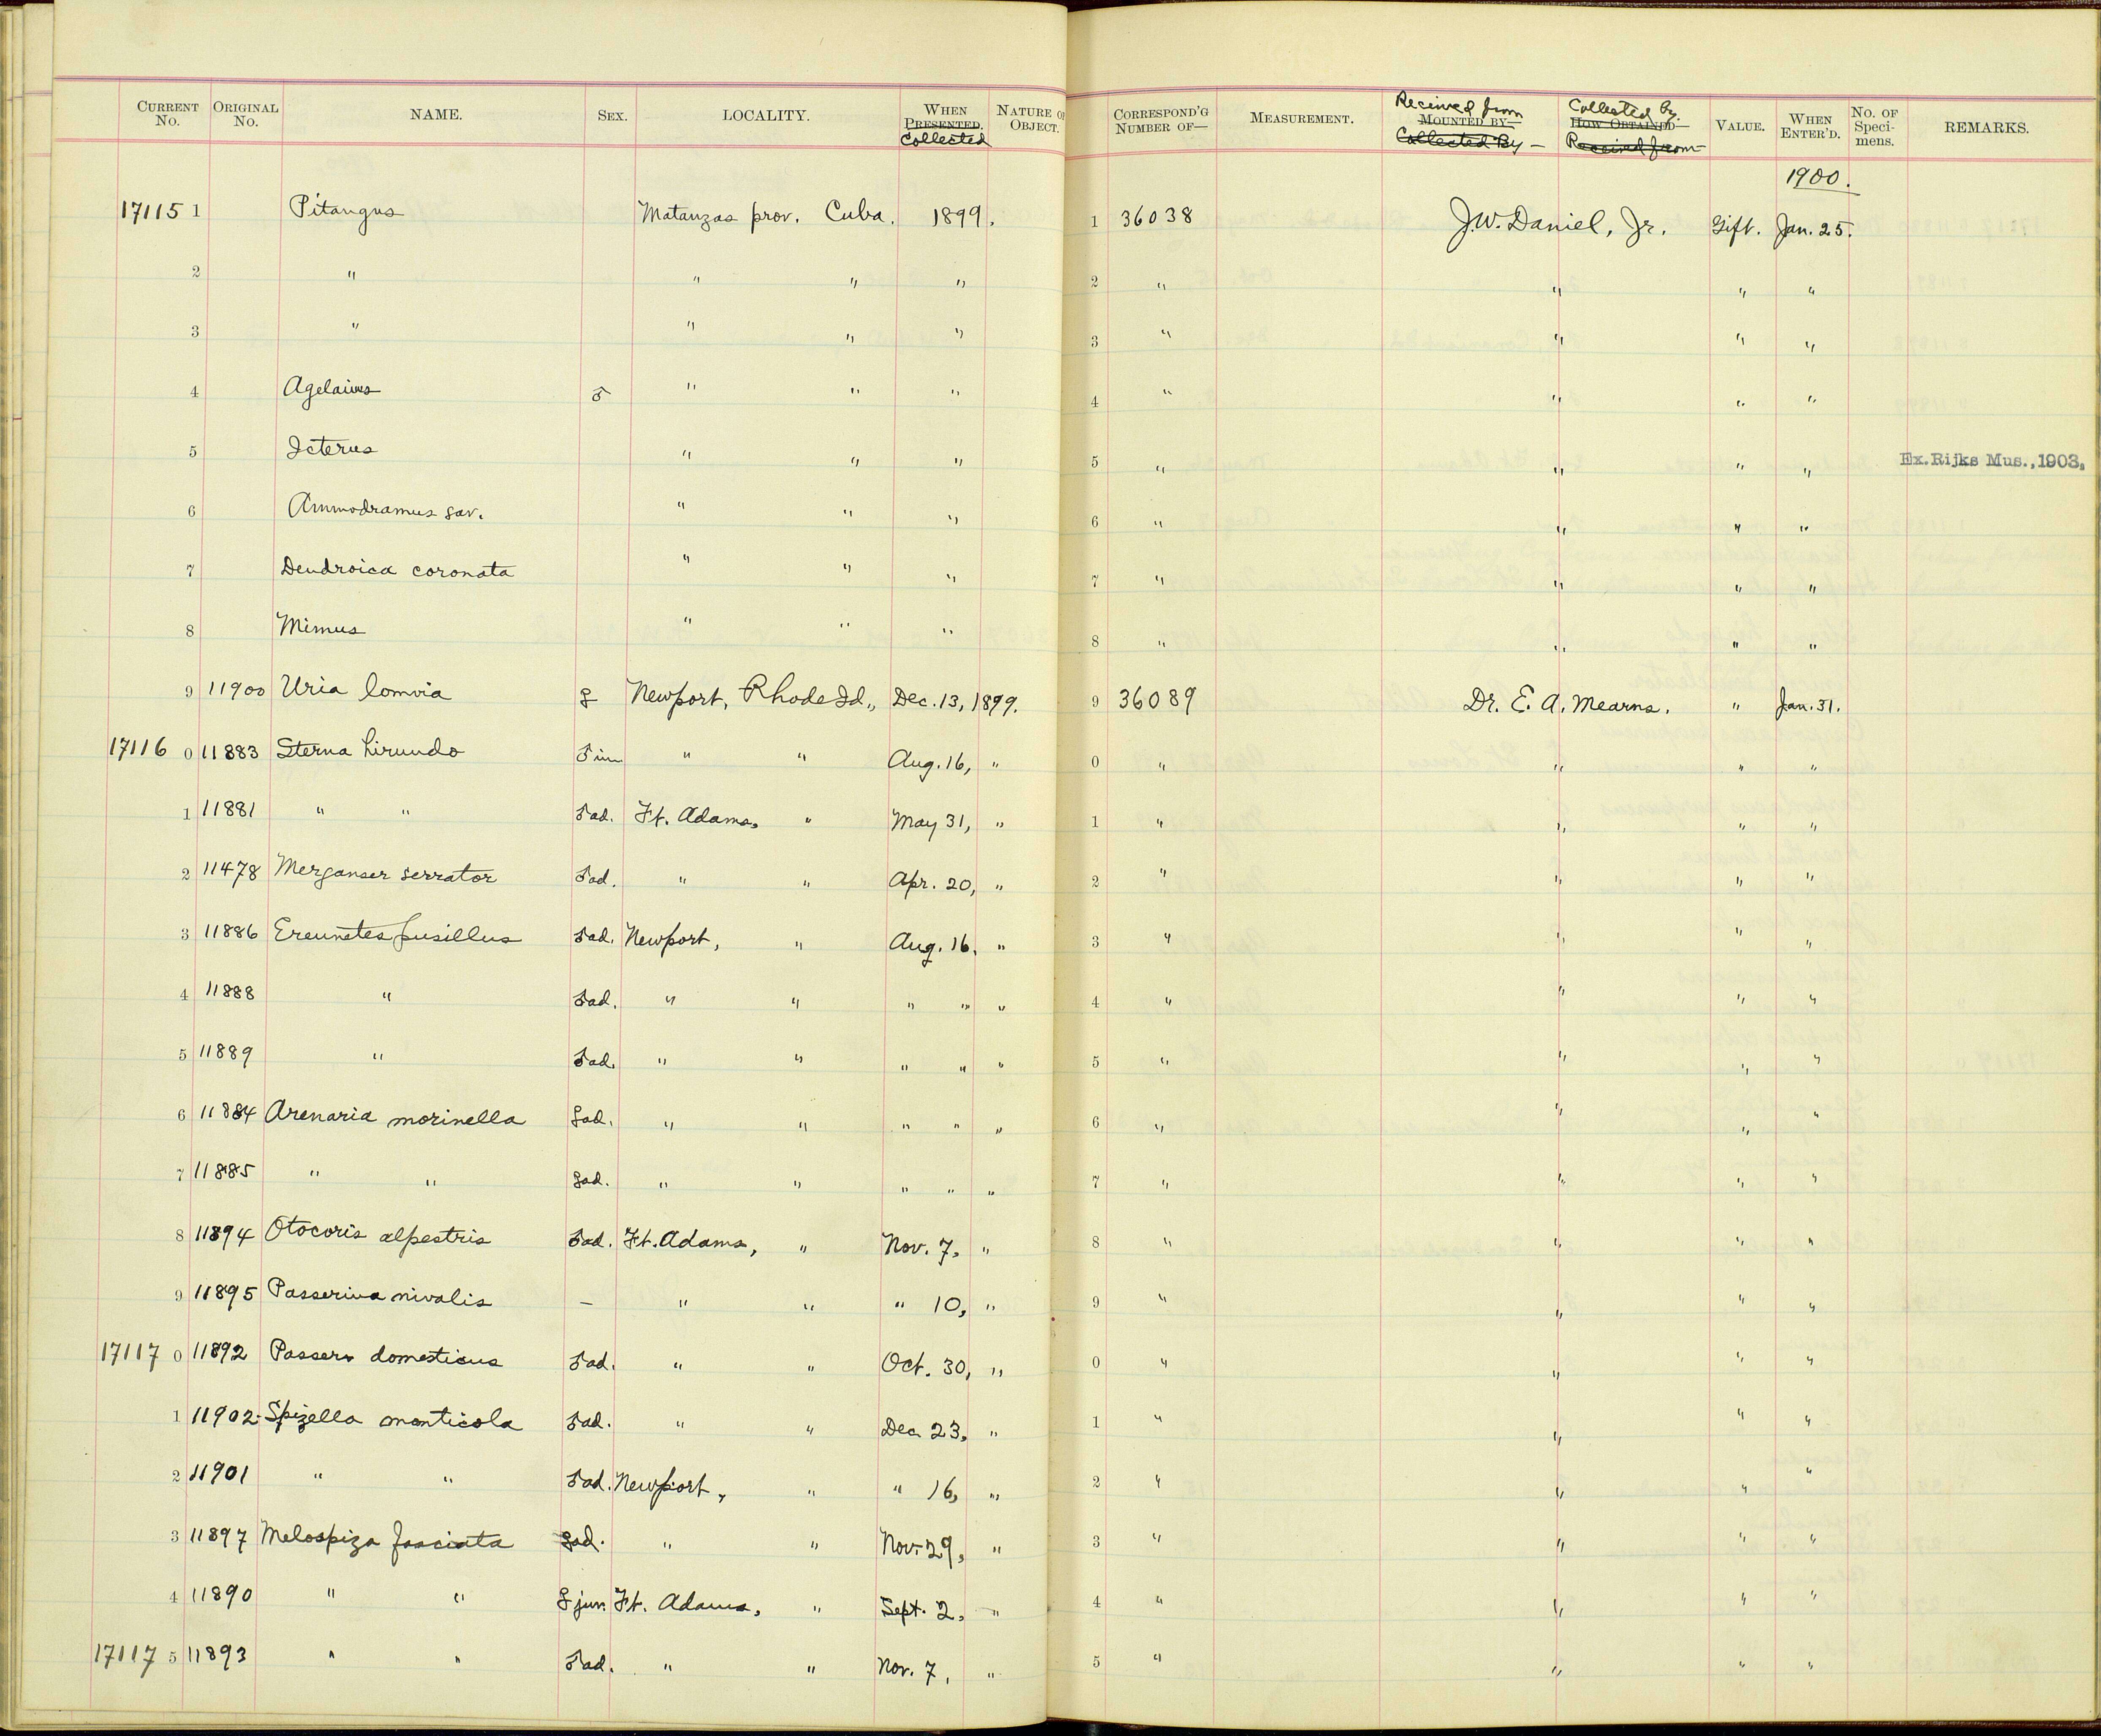 CURRENT No. ORIGINAL No. NAME. SEX. LOCALITY. WHEN PRESENTED. Collected NATURE OF OBJECT. CORRESPOND'G NUMBER OF— MEASUREMENT. Received from MOUNTED BY— Collected By — Collected by. HOW OBTAINED— Received from VALUE. WHEN ENTER'D. No. OF Speci-mens. REMARKS.
1900.
17115 1 Pitangus Matanzas prov. Cuba. 1899. 1 36038 J.W. Daniel, Jr. Gift. Jan. 25.
2 " " " " 2 " " " "
3 " " " " 3 " " " "
4 Agelaius ♂ " " " 4 " " " "
5 Icterus " " " 5 " " " " Ex. Rijks Mus., 1903.
6 Ammodramus sav. " " " 6 " " " "
7 Dendroica coronata " " " 7 " " " "
8 Mimus " " " 8 " " " "
9 11900 Uria lomvia ♀ Newport, Rhode Id., Dec. 13, 1899. 9 36089 Dr. E. A. Mearns. " Jan. 31.
17116 0 11883 Sterna hirundo ♂ im " " Aug. 16, " 0 " " " "
1 11881 " " ♂ ad. Ft. Adams, " May 31, " 1 " " " "
2 11478 Merganser serrator ♂ ad. " " Apr. 20, " 2 " " " "
3 11886 Ereunetes pusillus ♂ ad. Newport, " Aug. 16. " 3 " " " "
4 11888 " ♂ ad. " " " " " 4 " " " "
5 11889 " ♂ ad. " " " " " 5 " " " "
6 11884 Arenaria morinella ♀ ad. " " " " " 6 " " " "
7 11885 " " ♀ ad. " " " " " 7 " " " "
8 11894 Otocoris alpestris ♂ ad. Ft. Adams, " Nov. 7, " 8 " " " "
9 11895 Passerina nivalis — " " " 10, " 9 " " " "
17117 0 11892 Passer domesticus ♂ ad. " " Oct. 30, " 0 " " " "
1 11902 Spizella monticola ♂ ad. " " Dec 23, " 1 " " " "
2 11901 " " ♂ ad. Newport, " " 16, " 2 " " " "
3 11897 Melospiza fasciata ♀ ad. " " Nov. 29, " 3 " " " "
4 11890 " " ♀ juv. Ft. Adams, " Sept. 2, " 4 " " " "
17117 5 11893 " " ♂ ad. " " Nov. 7, " 5 " " " "